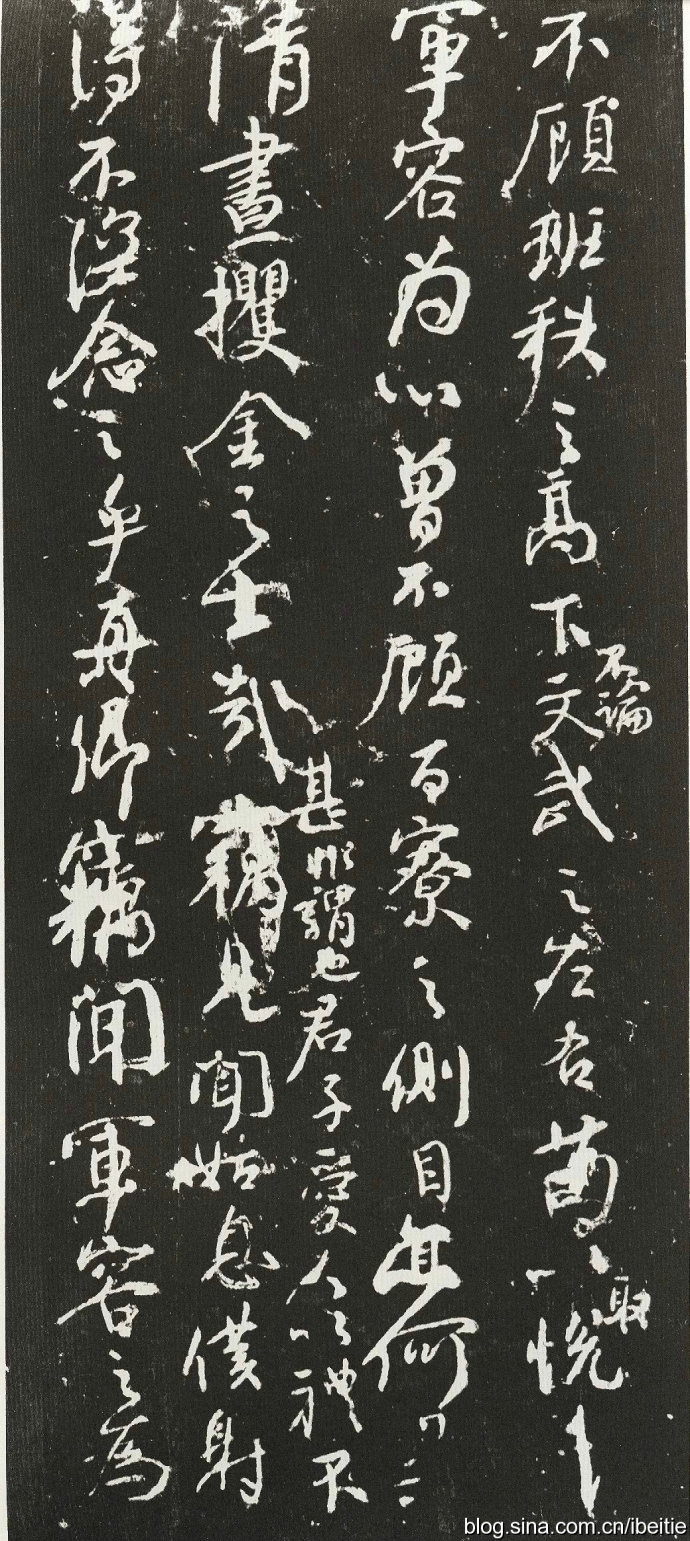 不顧班秩之高下不論文武之左右苟以取悅
軍容為心曾不顧百寮之側目亦何異
清晝攫金之士哉
甚非謂也君子愛人以禮不
竊見聞姑息僕射
得不深念之乎真卿竊聞軍容之為
blog.sina.com.cn/ibeitie